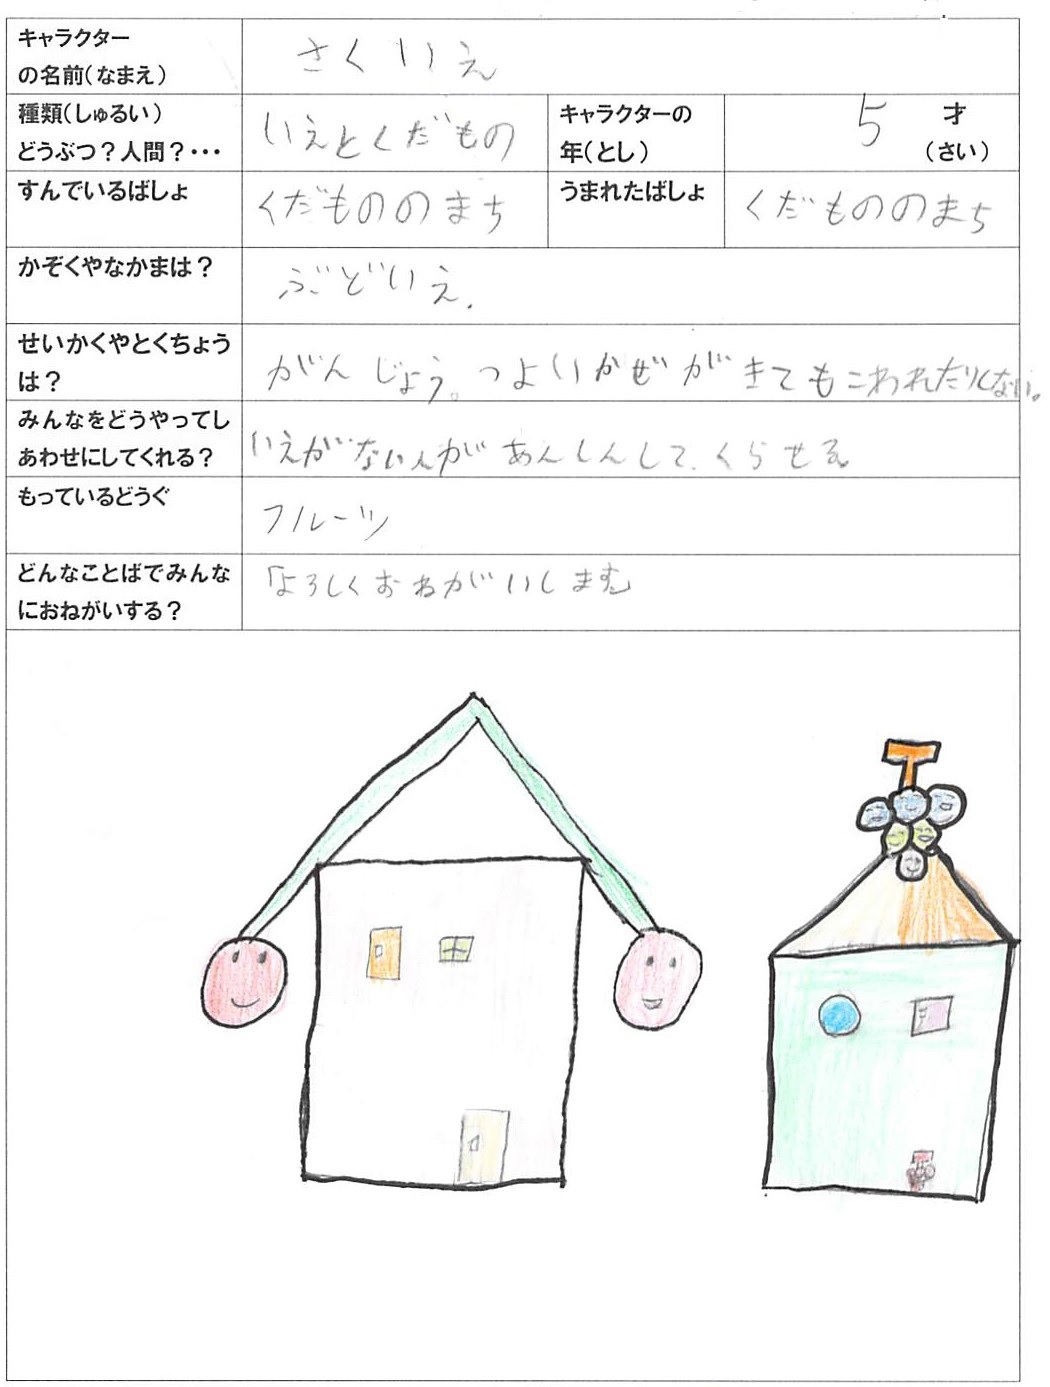 キャラクター
の名前(なまえ)
さくいえ
種類(しゅるい)
どうぶつ?人間?・・・
いえとくだもの
キャラクターの
年(とし)
5
才
(さい)
すんでいるばしょ
くだもののまち
うまれたばしょ
くだもののまち
かぞくやなかまは?
ぶどいえ.
せいかくやとくちょう
は?
がんじょう。つよいかぜがきてもこわれたりしない。
みんなをどうやってし
あわせにしてくれる?
いえがない人があんしんして、くらせる
もっているどうぐ
フルーツ
どんなことばでみんな
におねがいする?
「よろしくおねがいします」